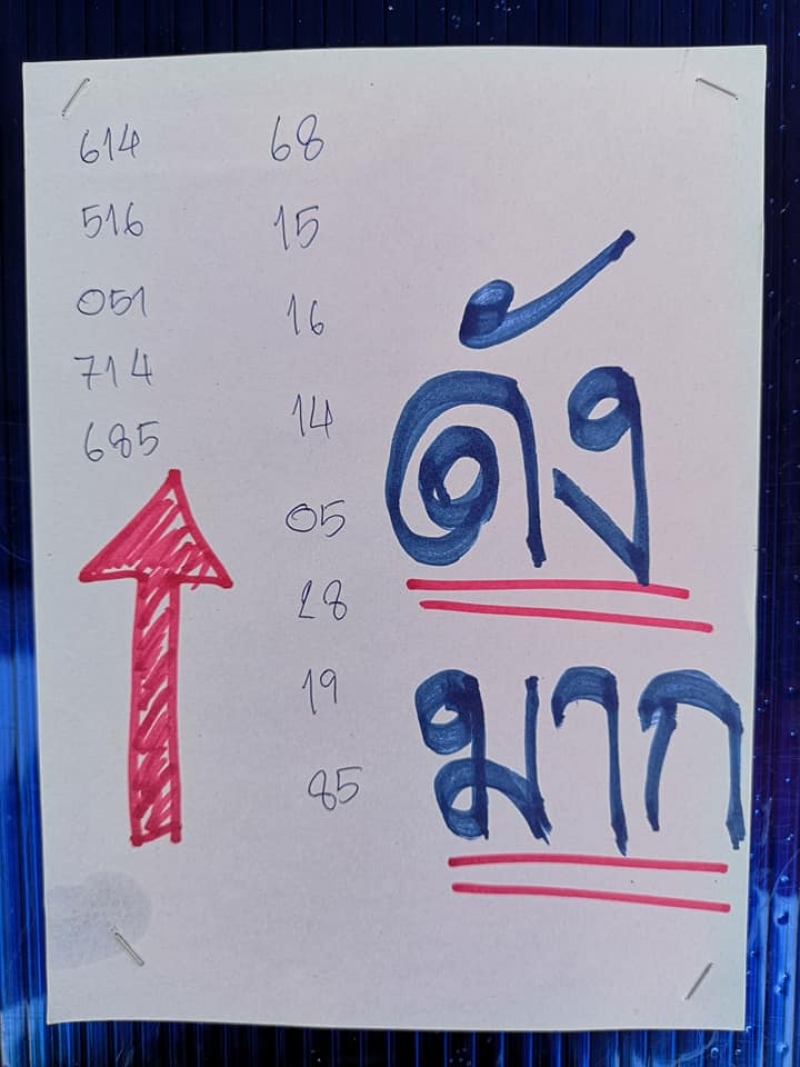 614
516
051
714
685
68
15
16
14
05
18
19
85
ดัง
มาก